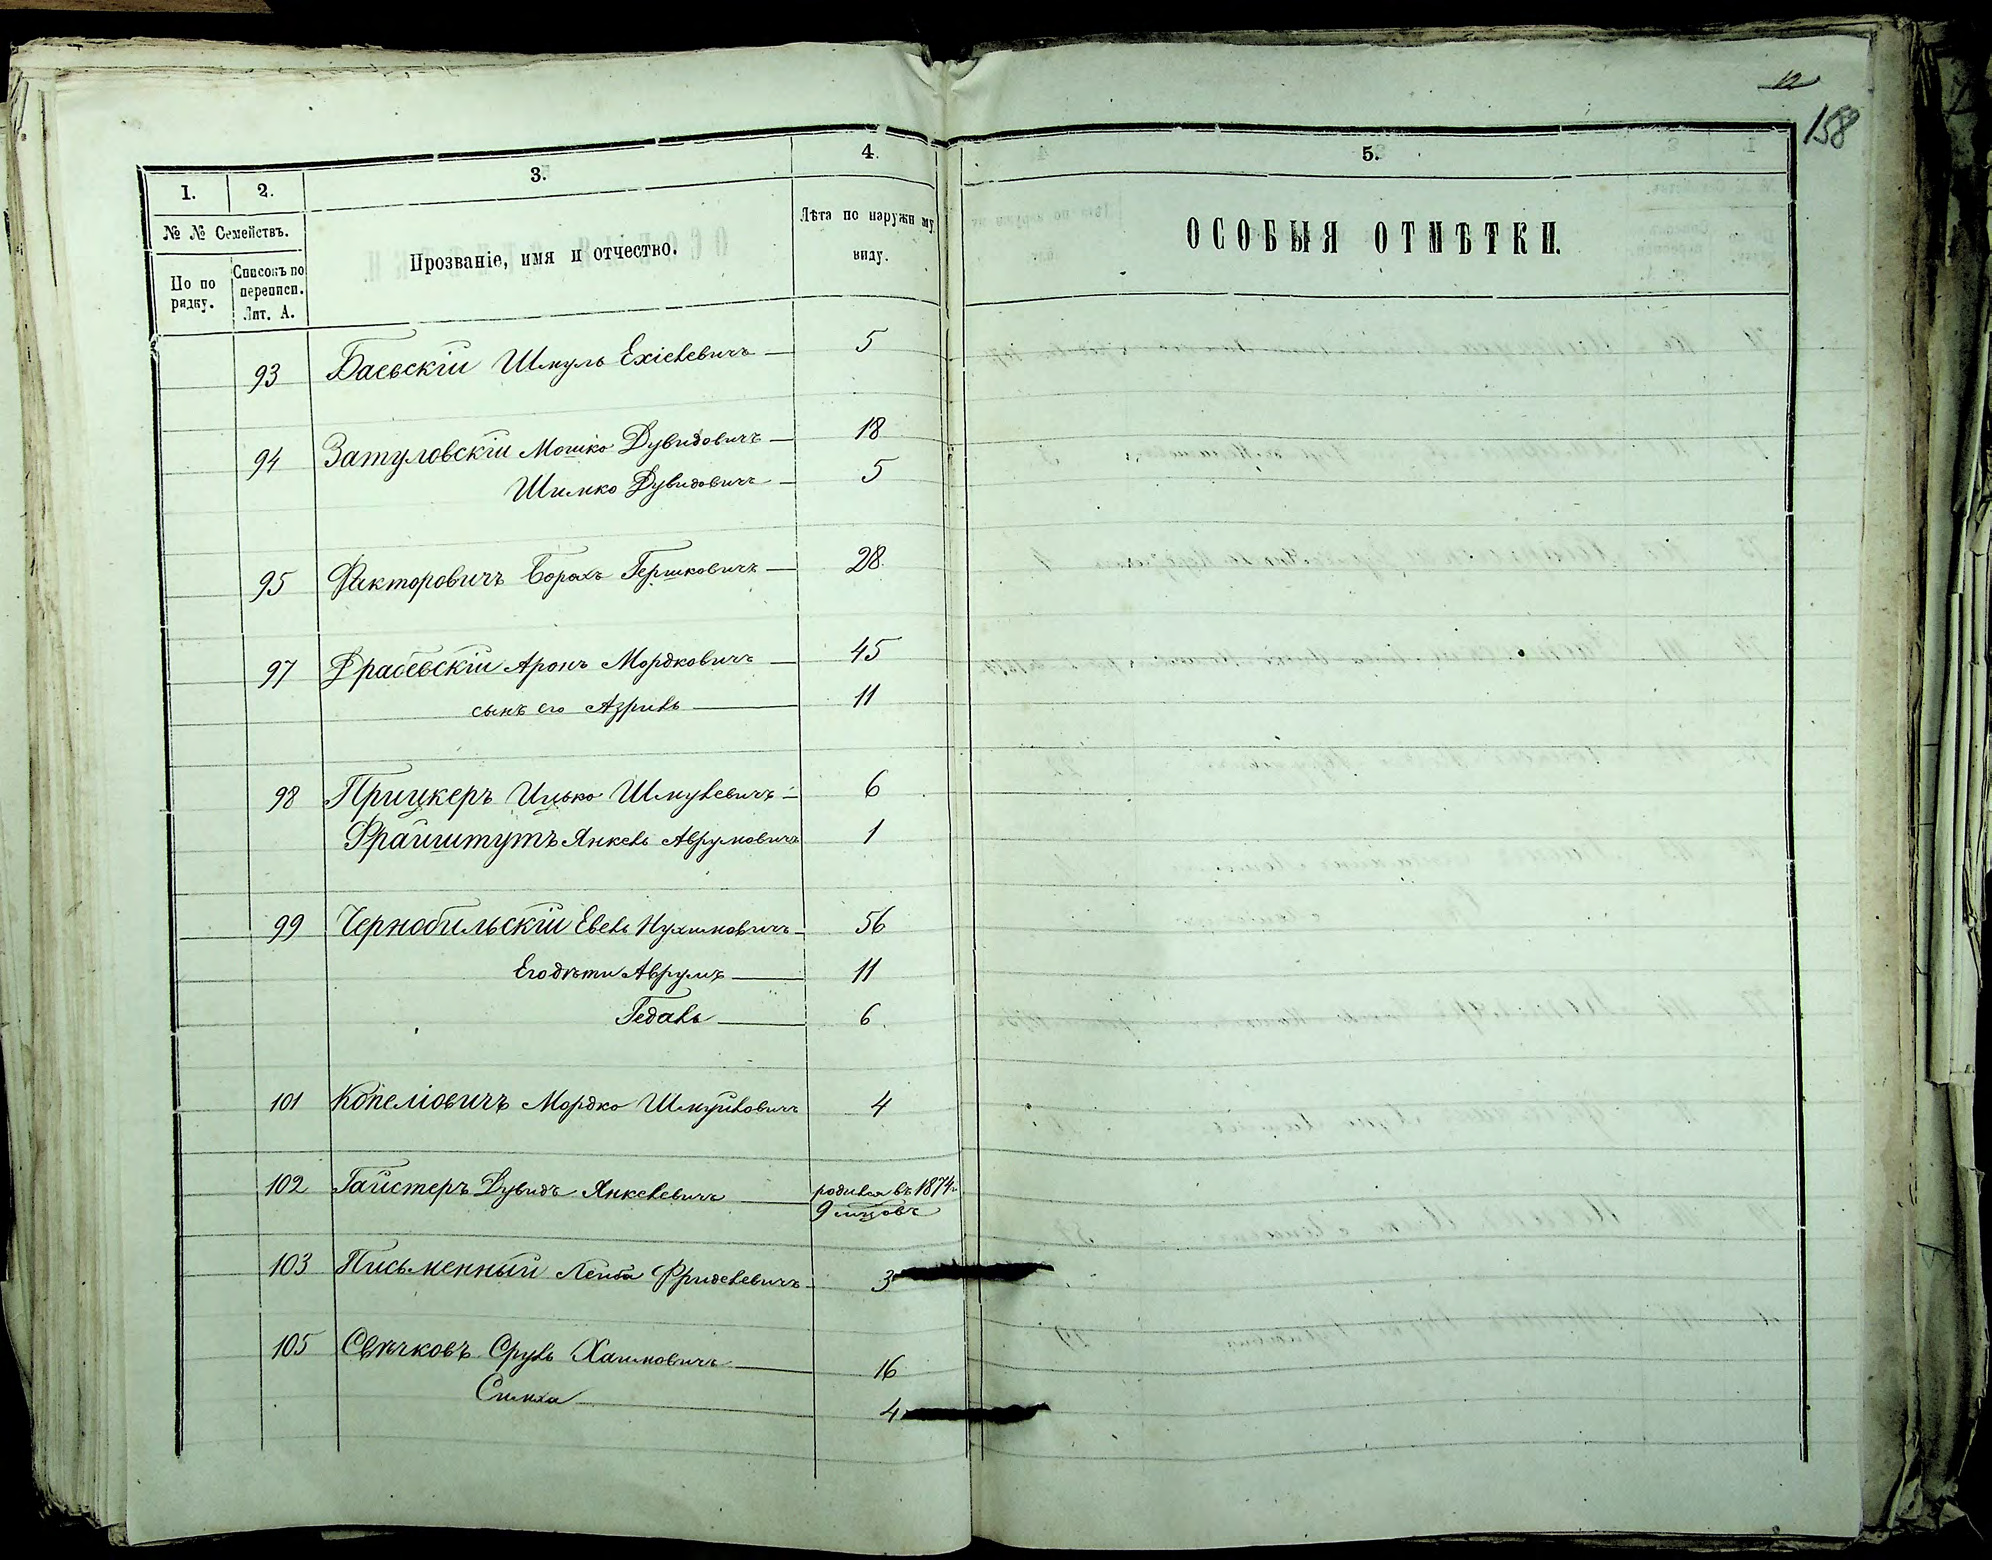 12
158
1. 2. 3. 4. 5.
№ № Семействъ.
По по рядку.
Списокъ по переписи. Лит. А.
Прозваніе, имя и отчество.
Лѣта по наружн му виду.
ОСОБЫЯ ОТМѢТКИ.
93 Баевскій Шмуль Ехіелевичъ 5
94 Затуловскій Мошко Дувидовичъ 18
Шимко Дувидовичъ 5
95 Факторовичъ Борохъ Гершковичъ 28
97 Аронъ Мордковичъ 45
сынъ его Азриль 11
98 Прицкеръ Ицько Шмулевичъ 6
Фрайштутъ Янкель Аврумовичъ 1
99 Чернобильскій Евель Нухимовичъ 56
Его дѣти Аврумъ 11
Гедаль 6
101 Копеліовичъ Мордко Шмуйловичъ 4
102 Гайстеръ Дувидъ Янкелевичъ родился въ 1874 г
9 мцовъ
103 Письменный Лейба Фриделевичъ 3
105 Свѣчковъ Сруль Хаимовичъ 16
Симха 4